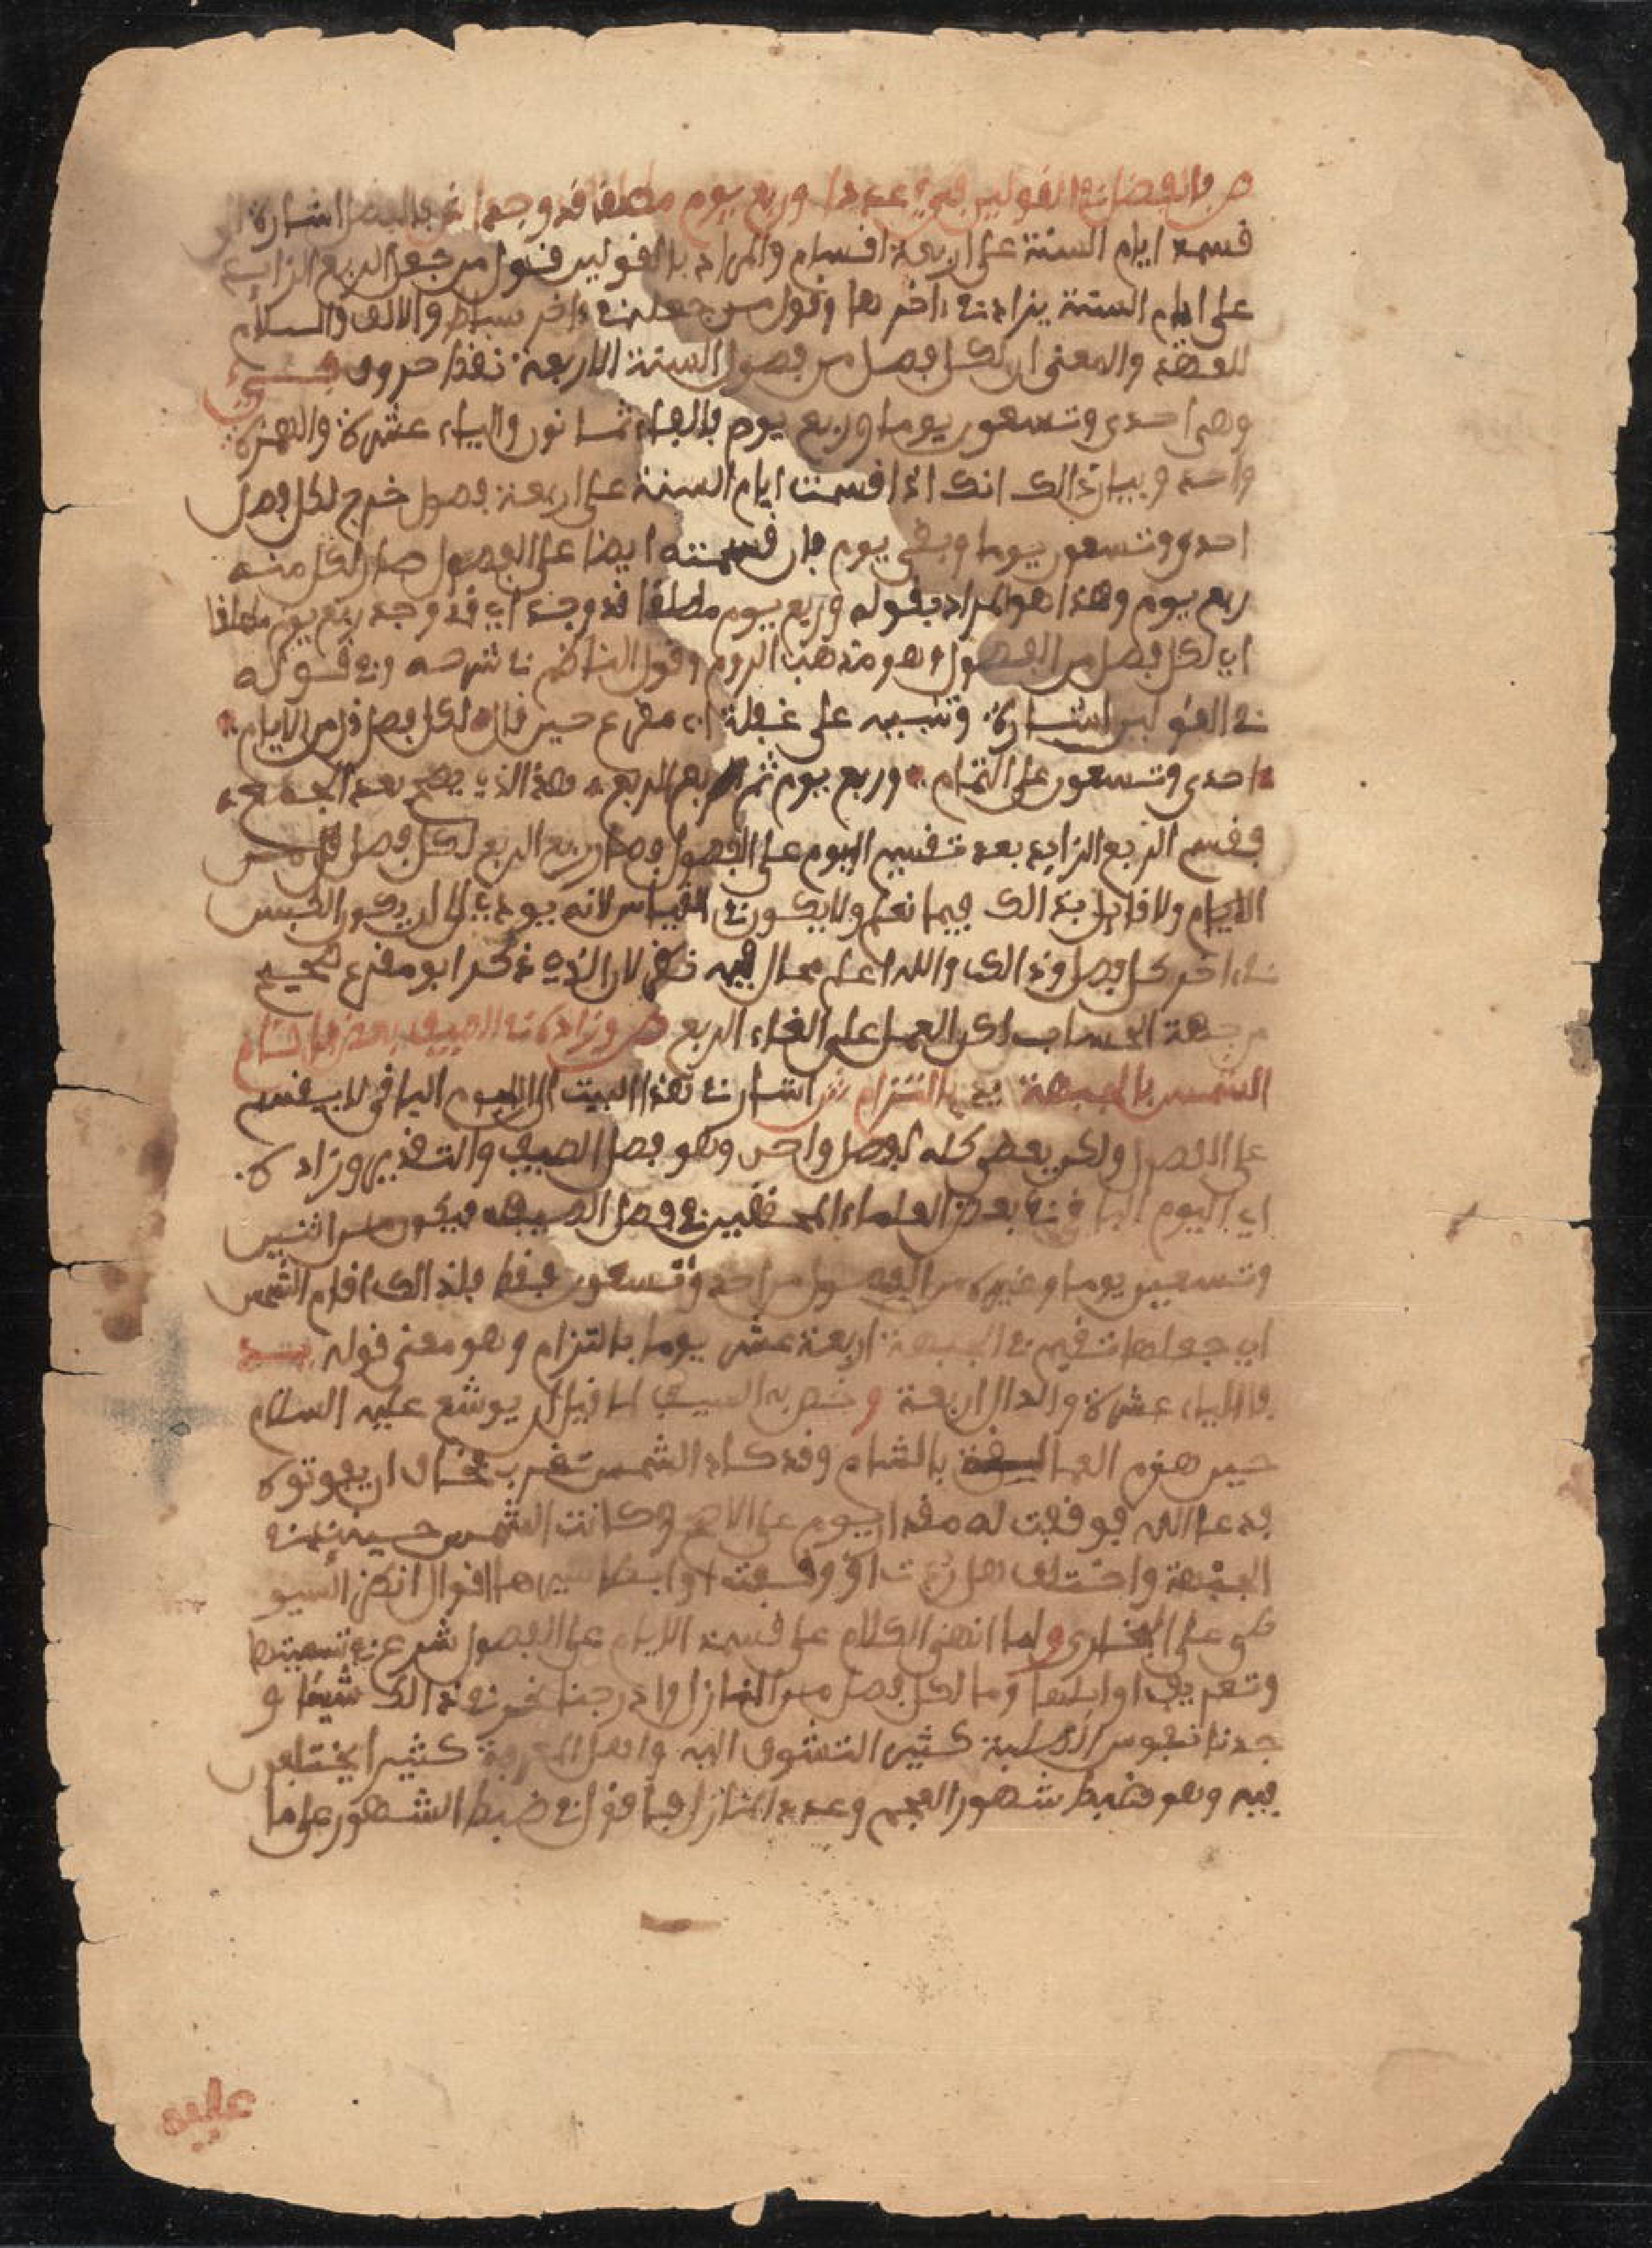 ص بالفصل في القولين فيء عددا وربع يوم مطلقا قد وجدا ش بالفصل اشارة الى
قسمة ايام السنة على اربعة اقسام والمراد بالقولين قول من جعل الربع الزايد
على ايام السنة يزاد في ءاخرها وقول من جعله في ءاخر سباط والالف والسلام
للعهد والمعنى ان لكل فصل من فصول السنة الاربعة نقط حروف فيء
وهي احدى وتسعون يوما وربع يوم فالفاء ثمانون والياء عشرة والهمزة
واحد وبيان ذالك انك اذا قسمت ايام السنة على اربعة فصول خرج لكل فصل
احدى وتسعون يوما وبقي يوم فان قسمته ايضا على الفصول صار لكل منه
ربع يوم وهذا هو المراد بقوله وربع يوم مطلقا قد وجد اي قد وجد ربع يوم مطلقا
اي لكل فصل من الفصول وهو مذهب الروم وقول الناظم في شرحه وفي قوله
في القولين اشارة وتنبيه على غفلة ابي مقرع حين قال لكل فصل قل من الايام
احدى وتسعون على التمام وربع يوم ثم ربع الربع هذا الذي يصح بعد الجمع
فقسم الربع الزايد بعد تقسيم اليوم على الفصول فصار ربع الربع لكل فصل من
الايام ولا قايل بذالك فيما نعلم ولا يكون في القياس لانه يودي الى ان يكون الكبس
في ءاخر كل فصل وذالك والله اعلم محال فيه نظر لان الذي ذكر ابو مقرع صحيح
من جهة الحساب لكن العمل على الغاء الربع ص وزاده في الصيف بعض فاقام
الشمس بالجبهة يد بالتزام ش اشار في هذا البيت الى ان اليوم الباقي لا يقسم
على الفصول ولكن يعطى كله لفصل واحد وهو فصل الصيف والتقدير وزاده
اي اليوم الباقي في بعض العلماء المحققين في فصل الصيف فيكون من اثنين
وتسعين يوما وغيره من الفصول من احد وتسعون فقط فلذالك اقام الشمس
اي جعلها تقيم في الجبهة اربعة عشر يوما بالتزام وهو معنى قوله يد
فالياء عشرة والدال اربعة وخص به الصيف لما قيل ان يوشع عليه السلام
حين هزم العمالقة بالشام وقد كاد الشمس تغرب فخاف ان يفوتوه
فدعا الله فوقفت له مقدار يوم على الاصح وكانت الشمس حينئذ في
الجبهة واختلف هل ردت او وقفت او ابطا سيرها اقوال انظر السيو
طي على البخاري ولما انهى الكلام على قسمة الايام على الفصول شرع في تسميتها
وتعريف اوايلها وما لكل فصل من المنازل وادرجنا نحن في ذالك شيئا و
جدنا نفوس الطلبة كثير التشوف اليه واهل المعرفة كثيرا يختلفون
فيه وهو ضبط شهور العجم وعدد المنازل فاقول في ضبط الشهور على ما
عليه